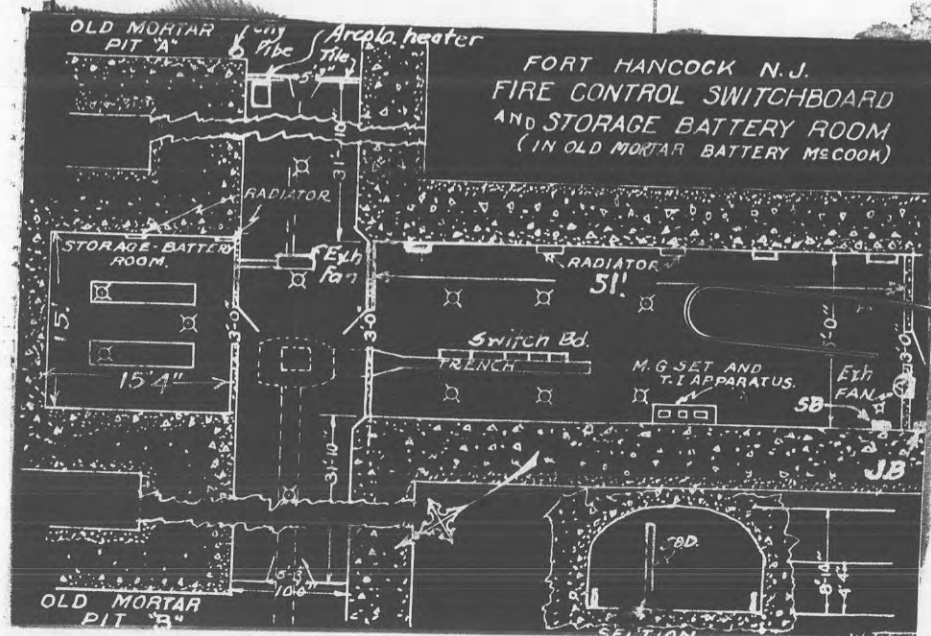 OLD MORTAR
PIT "A"
Pipe
Arcola heater
Tile
5'
FORT HANCOCK N.J.
FIRE CONTROL SWITCHBOARD
AND STORAGE BATTERY ROOM
(IN OLD MORTAR BATTERY McCOOK)
31'-10"
RADIATOR
STORAGE-BATTERY
ROOM.
Exh
Fan
RADIATOR
51'
15'
3'-0"
3'-0"
3'-0"
Switch Bd.
TRENCH
15'4"
M.G. SET AND
T.I APPARATUS.
Exh
FAN
SB
JB
31'-10"
BD.
8'-0"
4'-4"
10'-0"
OLD MORTAR
PIT "B"
SECTION